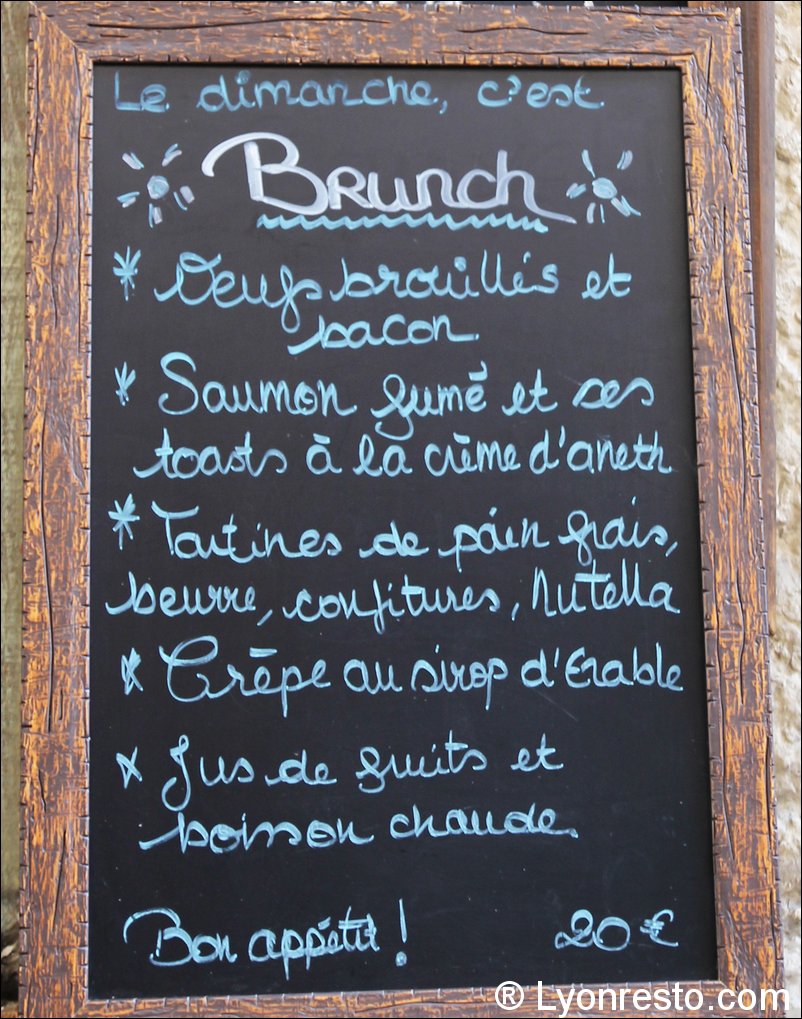 Le dimanche, c'est
Brunch
* Oeufs brouillés et
bacon
* Saumon fumé et ses
toasts à la crème d'aneth
* Tartines de pain frais,
beurre, confitures, Nutella
* Crêpe au sirop d'Erable
* Jus de fruits et
boisson chaude.
Bon appétit ! 20 €
® Lyonresto.com